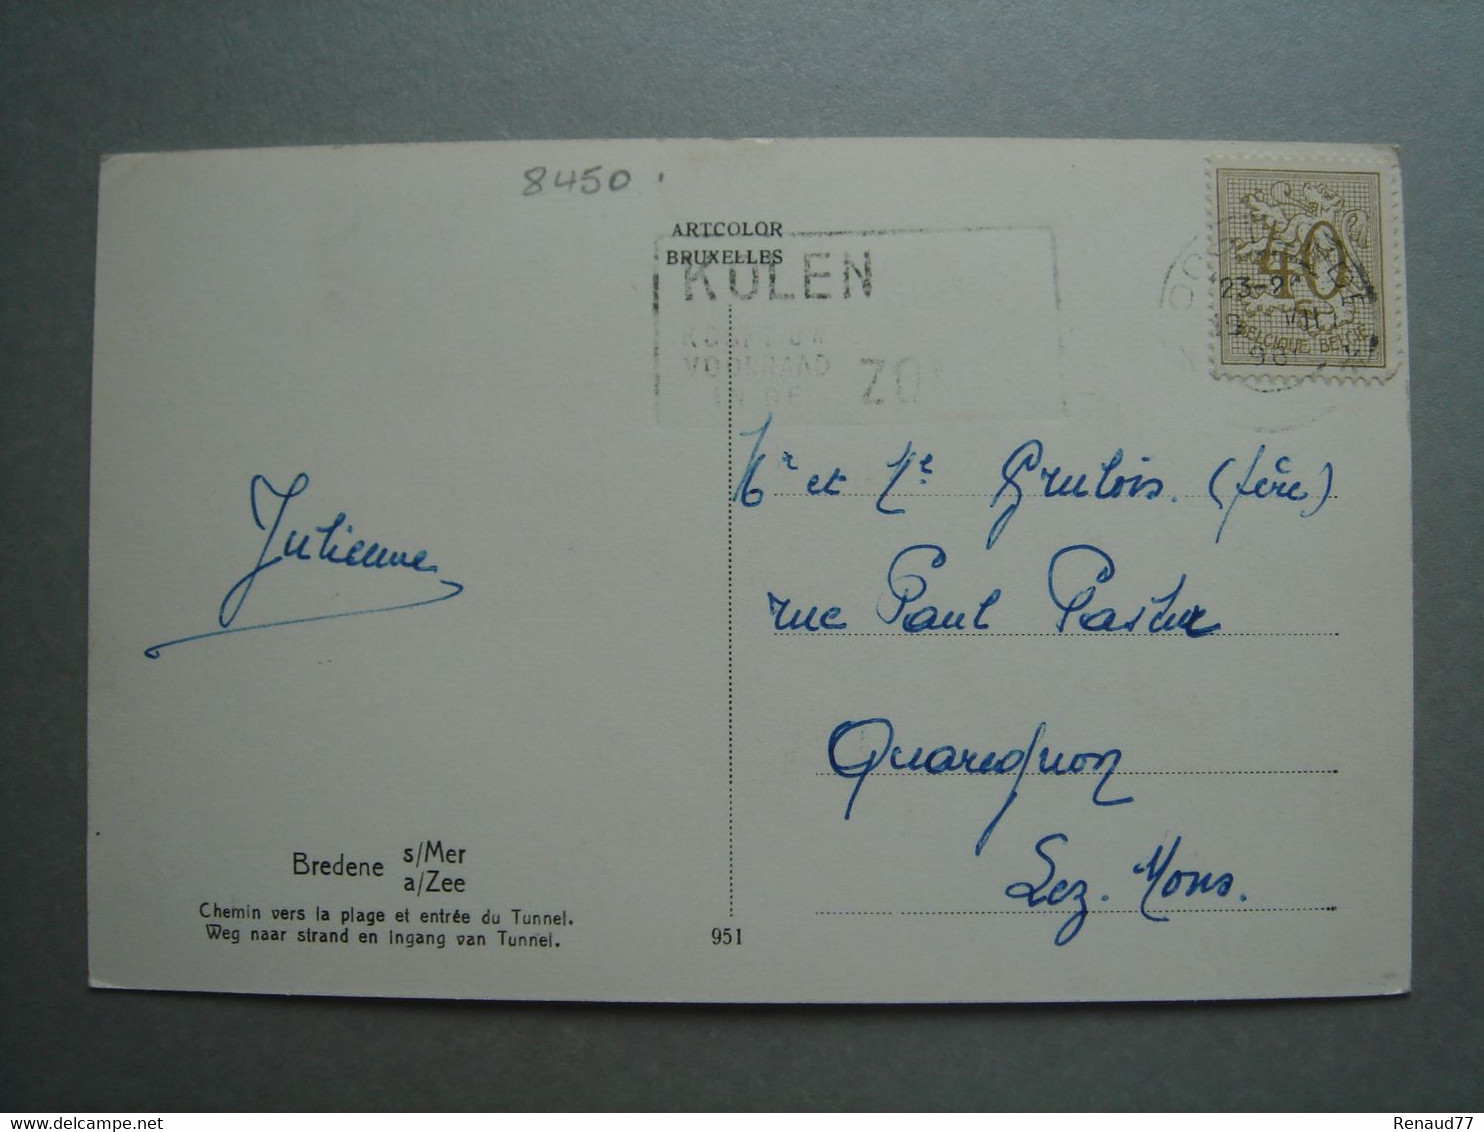 8450
ARTCOLOR
BRUXELLES
KOLEN
VOORRAAD
40
BELGIQUE BELGIE
Mr et Me Grulois. (père)
rue Paul Pastur
Quaregnon
Lez. Mons.
Julienne
Bredene s/Mer
a/Zee
Chemin vers la plage et entrée du Tunnel.
Weg naar strand en Ingang van Tunnel.
951
Renaud77